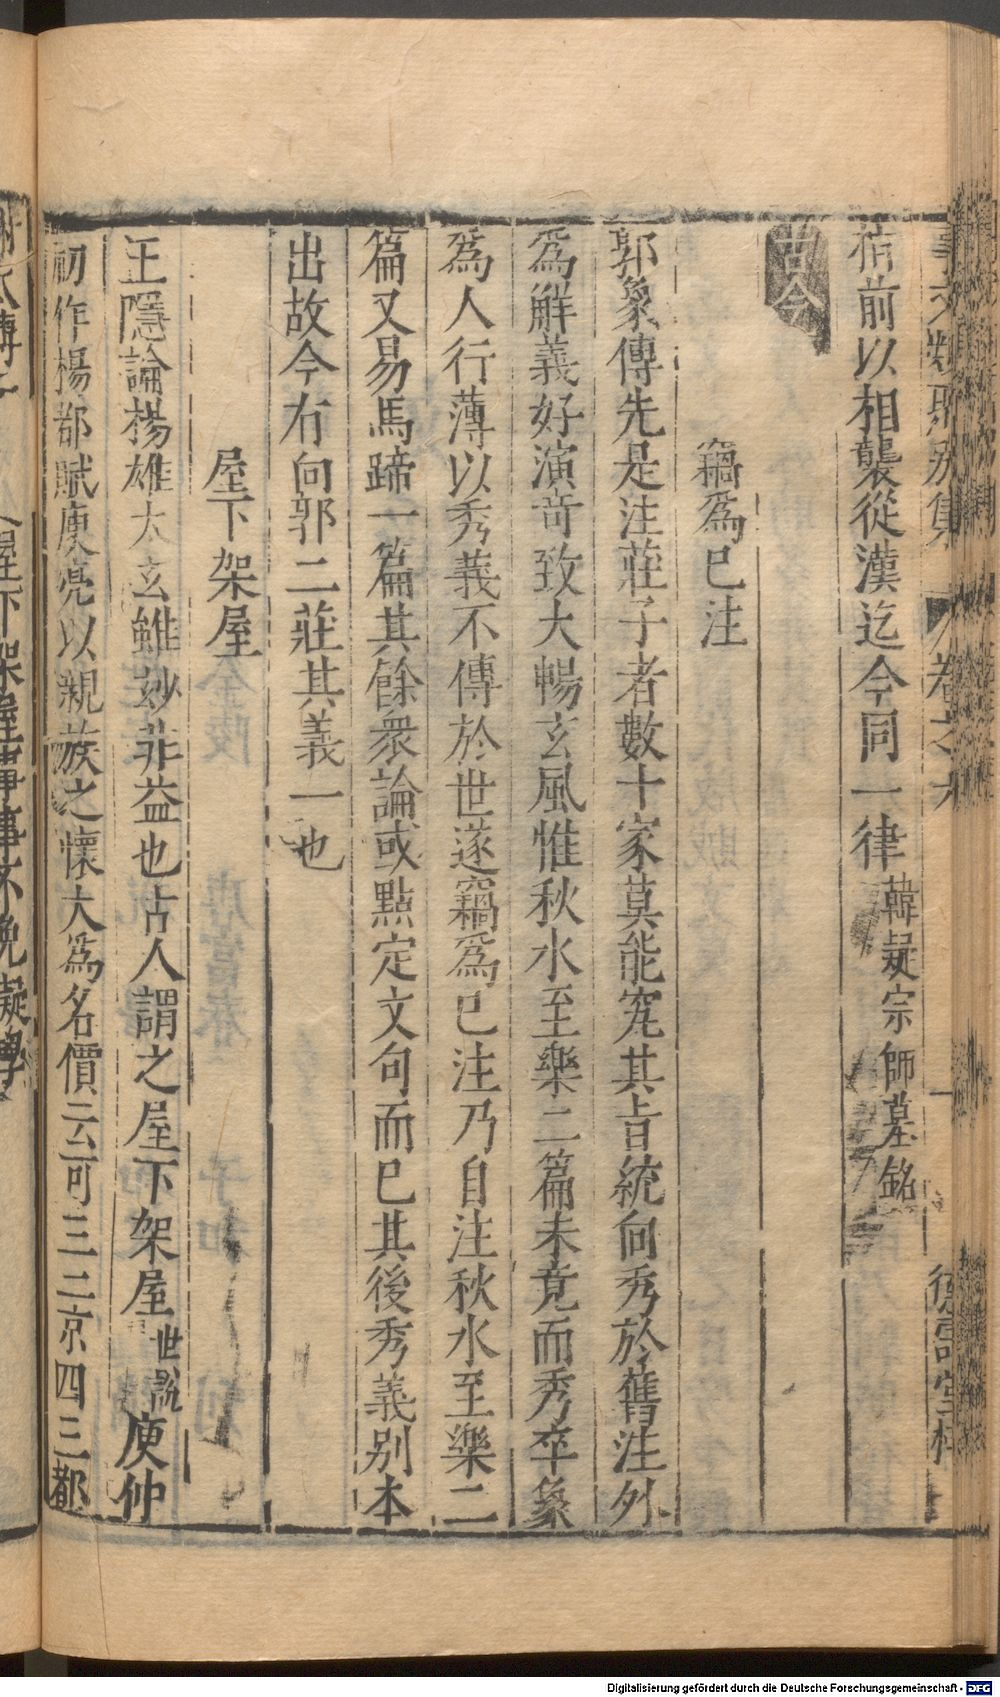 事文類聚別集 卷之六 德壽堂梓
指前以相襲從漢迄今同一律韓疑宗師墓銘
古今
竊爲已注
郭象傳先是注莊子者數十家莫能究其旨統向秀於舊注外
爲解義妙演奇致大暢玄風惟秋水至樂二篇未竟而秀卒象
爲人行薄以秀義不傳於世遂竊爲已注乃自注秋水至樂二
篇又易馬蹄一篇其餘衆論或點定文句而已其後秀義別本
出故今有向郭二莊其義一也
屋下架屋
王隱論楊雄太玄雖妙非益也古人謂之屋下架屋世說庾仲
初作楊都賦庾亮以親族之懷大爲名價云可三二京四三都
屋下架屋事事不免疑學
Digitalisierung gefördert durch die Deutsche Forschungsgemeinschaft - DFG